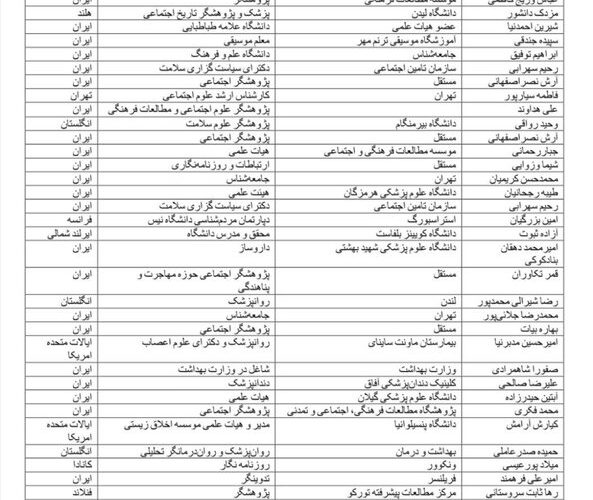 مزدک دانشور دانشگاه لیدن پزشک و پژوهشگر تاریخ اجتماعی هلند
شیرین احمدنیا دانشگاه علامه طباطبایی عضو هیات علمی ایران
سپیده جندقی آموزشگاه موسیقی ترنم مهر معلم موسیقی ایران
ابراهیم توفیق جامعه‌شناس دانشگاه علم و فرهنگ ایران
رحیم سهرابی سازمان تامین اجتماعی دکترای سیاست گزاری سلامت ایران
آرش نصراصفهانی مستقل پژوهشگر اجتماعی ایران
فاطمه سیارپور تهران کارشناس ارشد علوم اجتماعی تهران
علی هداوند پژوهشگر علوم اجتماعی و مطالعات فرهنگی ایران
وحید رواقی دانشگاه بیرمنگام پژوهشگر علوم سلامت انگلستان
آرش نصراصفهانی مستقل پژوهشگر اجتماعی ایران
جباررحمانی موسسه مطالعات فرهنگی و اجتماعی هیات علمی ایران
شیما وزوایی مستقل ارتباطات و روزنامه‌نگاری ایران
محمدحسن کریمیان تهران جامعه‌شناس ایران
طیبه رجحانیان دانشگاه علوم پزشکی هرمزگان هیئت علمی ایران
رحیم سهرابی سازمان تامین اجتماعی دکترای سیاست گزاری سلامت ایران
امین بزرگیان استراسبورگ دپارتمان مردم‌شناسی دانشگاه نیس فرانسه
آزاده ثبوت دانشگاه کویینز بلفاست محقق و مدرس دانشگاه ایرلند شمالی
امیرمحمد دهقان دانشگاه علوم پزشکی شهید بهشتی داروساز ایران
بنادکوکی
قمر تکاوران مستقل پژوهشگر اجتماعی حوزه مهاجرت و ایران
پناهندگی
رضا شیرالی محمدپور لندن روانپزشک انگلستان
محمدرضا جلائی‌پور تهران جامعه‌شناس ایران
بهاره بیات مستقل پژوهشگر اجتماعی ایران
امیرحسین مدبرنیا بیمارستان ماونت ساینای روانپزشک و دکترای علوم اعصاب ایالات متحده
امریکا
صفورا شاهمرادی وزارت بهداشت شاغل در وزارت بهداشت ایران
علیرضا صالحی کلینیک دندان‌پزشکی آفاق دندانپزشک ایران
آبتین حیدرزاده دانشگاه علوم پزشکی گیلان هیات علمی ایران
محمد فکری پژوهشگاه مطالعات فرهنگی، اجتماعی و تمدنی پژوهشگر اجتماعی ایران
کیارش آرامش دانشگاه پنسیلوانیا مدیر و هیات علمی موسسه اخلاق زیستی ایالات متحده
امریکا
حمیده صدرعاملی بهداشت و درمان روان‌پزشک و روان‌درمانگر تحلیلی انگلستان
میلاد پورعیسی ونکوور روزنامه نگار کانادا
امیرعلی فرهمند فریلنسر تدوینگر ایران
رها ثابت سروستانی مرکز مطالعات پیشرفته تورکو پژوهشگر فنلاند